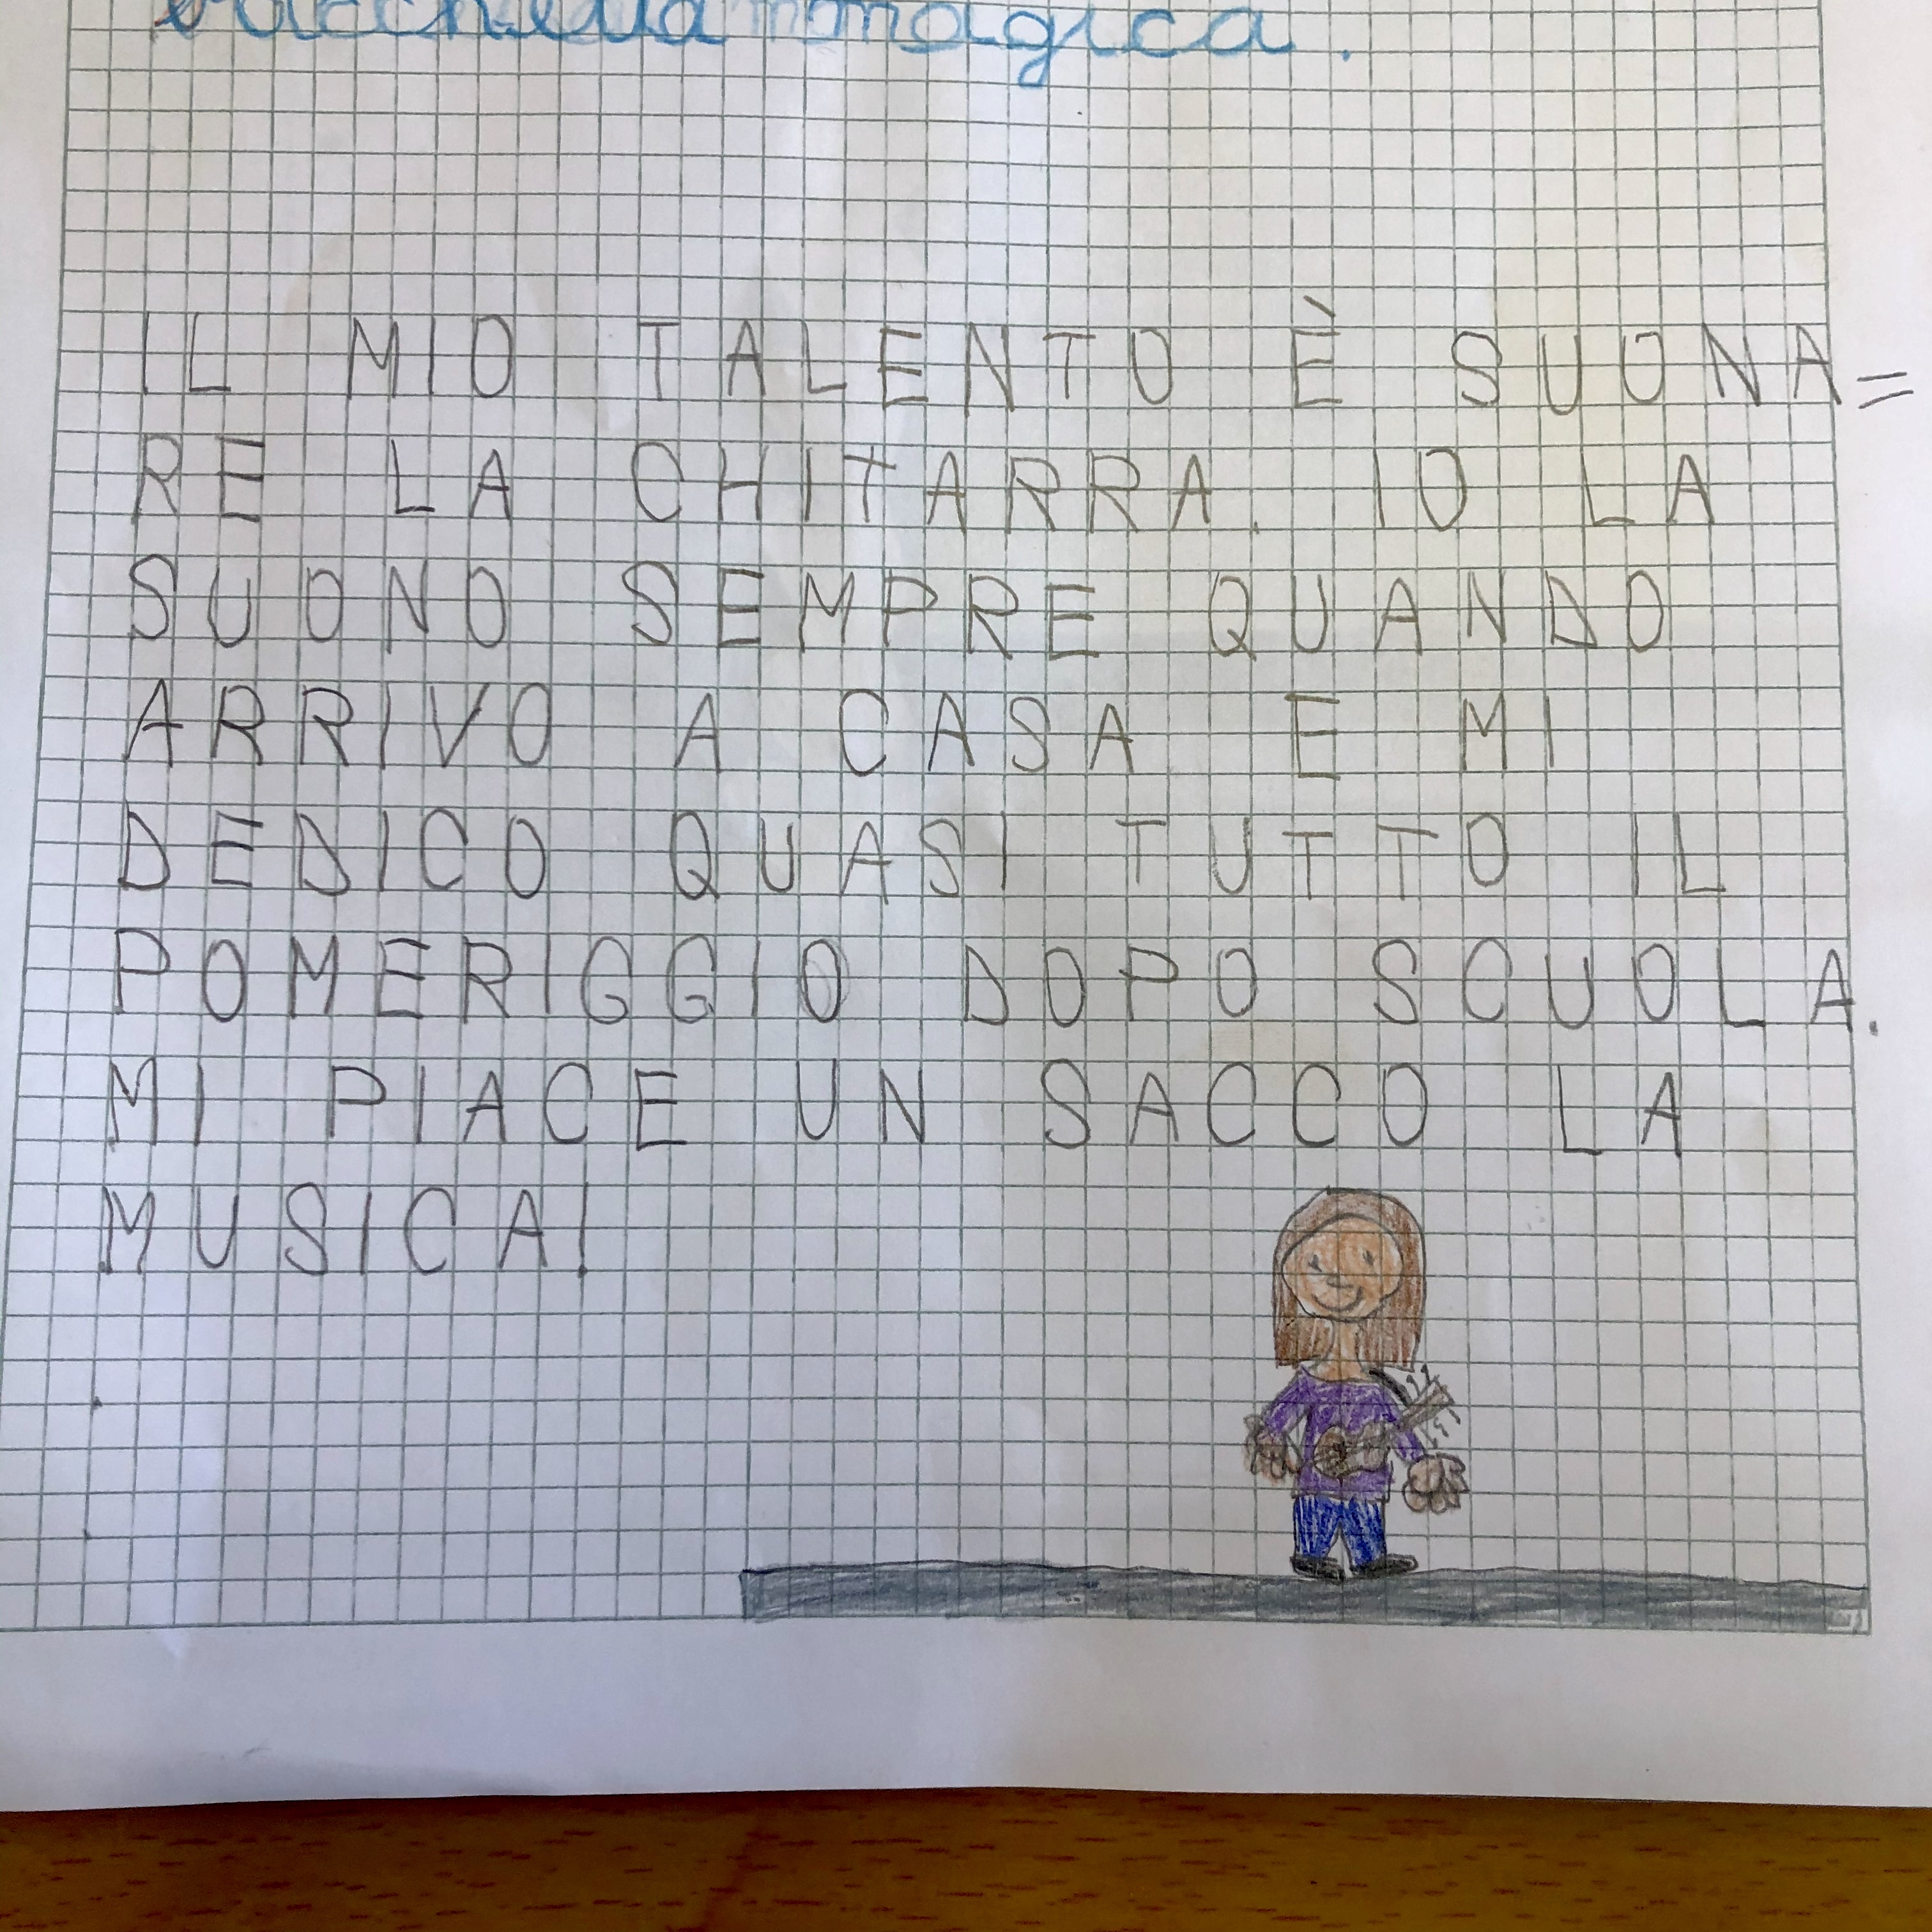 magica.
IL MIO TALENTO È SUONA=
RE LA CHITARRA. IO LA
SUONO SEMPRE QUANDO
ARRIVO A CASA E MI
DEDICO QUASI TUTTO IL
POMERIGGIO DOPO SCUOLA.
MI PIACE UN SACCO LA
MUSICA!